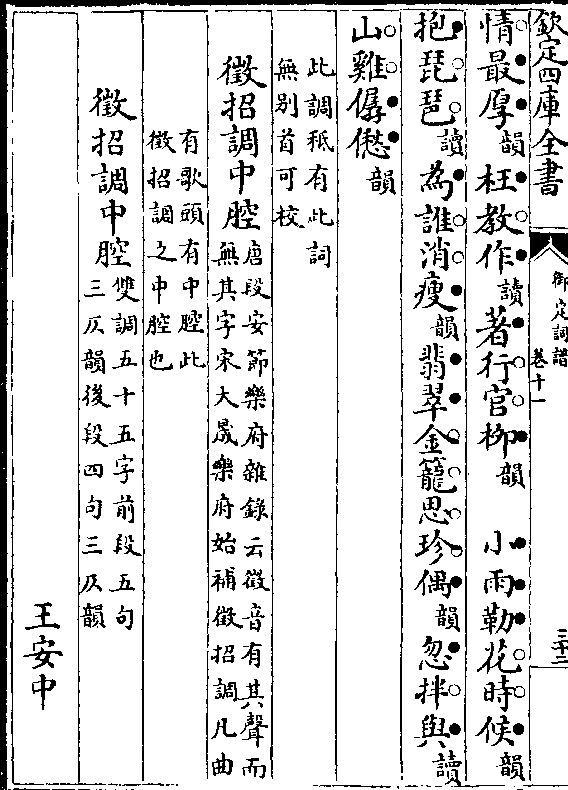 欽定四庫全書
御定詞譜
卷十一
三十三
情最厚韻枉教作讀著行官柳韻 小雨勒花時候韻
抱琵琶讀為誰消瘦韻翡翠金籠思珍偶韻忽拌與讀
山雞僝僽韻
此調秪有此詞
無别首可校
徵招調中腔唐段安節樂府雜錄云徵音有其聲而
無其字宋大晟樂府始補徵招調凡曲
有歌頭有中腔此
徵招調之中腔也
徵招調中腔雙調五十五字前段五句
三仄韻後段四句三仄韻
王安中